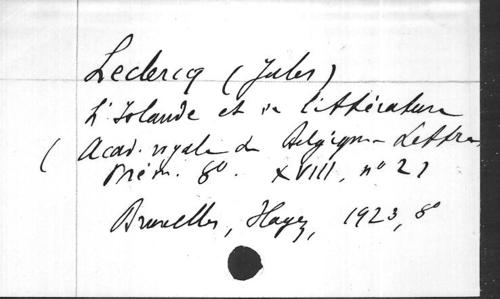 Leclercq (Jules)
L'Islande et sa littérature
(Acad. royale de Belgique Lettres
Mém. 8º. XVIII, nº 2)
Bruxelles, Hayez, 1923, 8º